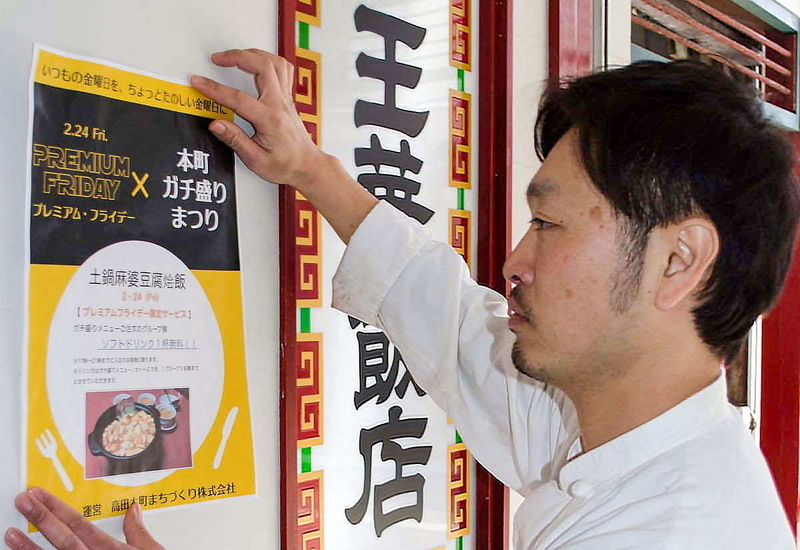 いつもの金曜日を、ちょっとたのしい金曜日に
2.24 Fri.
PREMIUM
FRIDAY
プレミアム・フライデー
×
本町
ガチ盛り
まつり
土鍋麻婆豆腐燴飯
2・24 (Fri)
【プレミアムフライデー限定サービス】
ガチ盛りメニューご注文のグループ様
ソフトドリンク1杯無料！！
運営 高田本町まちづくり株式会社
王華飯店